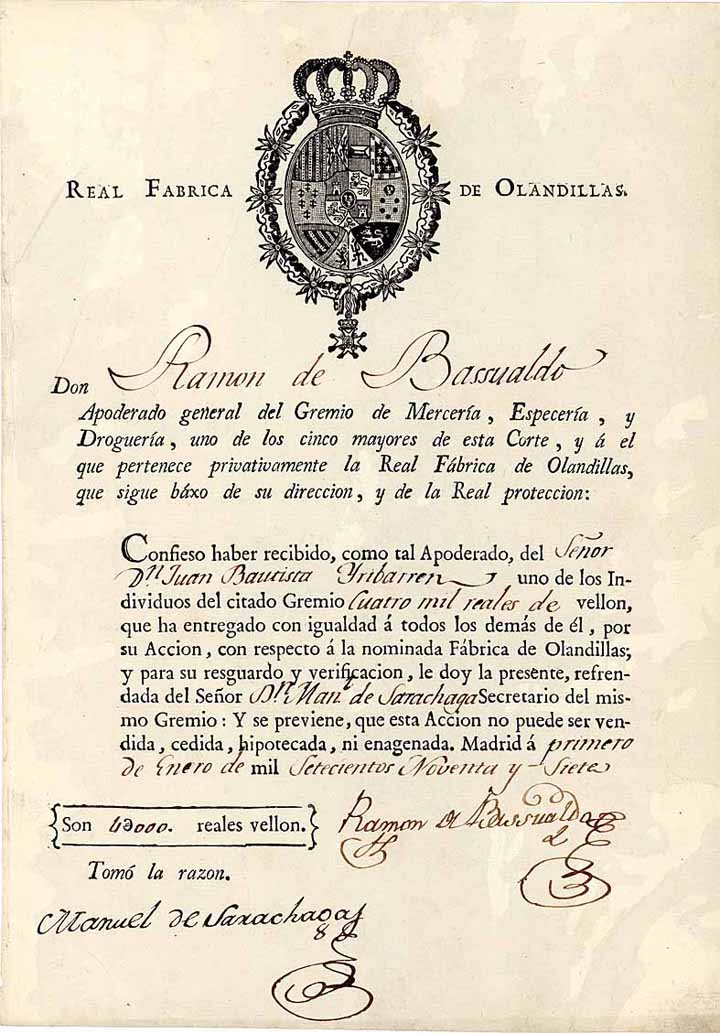 REAL FABRICA DE OLANDILLAS.
Don Ramon de Bassualdo
Apoderado general del Gremio de Mercería, Especería, y
Droguería, uno de los cinco mayores de esta Corte, y á el
que pertenece privativamente la Real Fábrica de Olandillas,
que sigue báxo de su direccion, y de la Real proteccion:
Confieso haber recibido, como tal Apoderado, del Señor
Dn. Juan Bautista Yribarren, uno de los In-
dividuos del citado Gremio Cuatro mil reales de vellon,
que ha entregado con igualdad á todos los demás de él, por
su Accion, con respecto á la nominada Fábrica de Olandillas;
y para su resguardo y verificacion, le doy la presente, refren-
dada del Señor Dn. Manl. de Sarachaga Secretario del mis-
mo Gremio: Y se previene, que esta Accion no puede ser ven-
dida, cedida, hipotecada, ni enagenada. Madrid á primero
de Enero de mil Setecientos Noventa y Siete
Son 4000. reales vellon.
Ramon de Bassualdo
Tomó la razon.
Manuel de Sarachaga